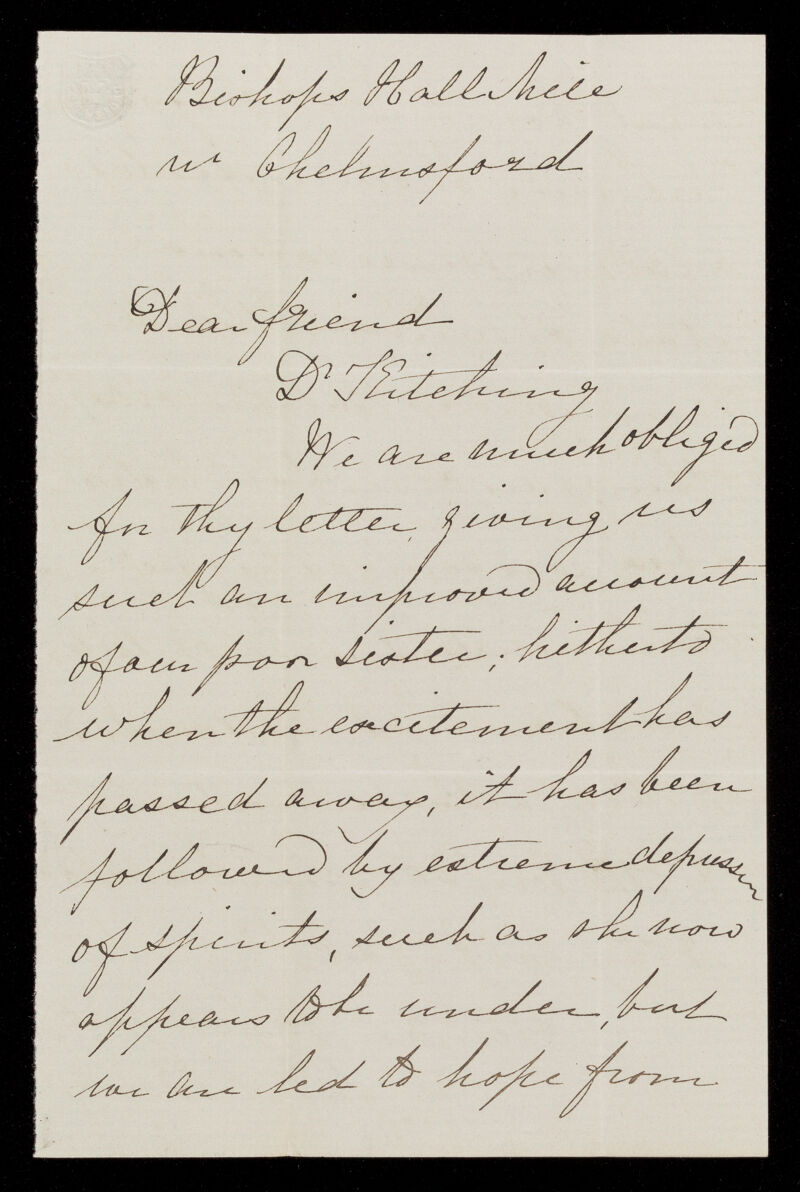 Bishops Hall Mill
nr Chelmsford
Dear friend
Dr Kitching
We are much obliged
for thy letter, giving us
such an improved account
of our poor sister; hitherto
when the excitement has
passed away, it has been
followed by extreme depression
of spirits, such as she now
appears to be under, but
we are led to hope from